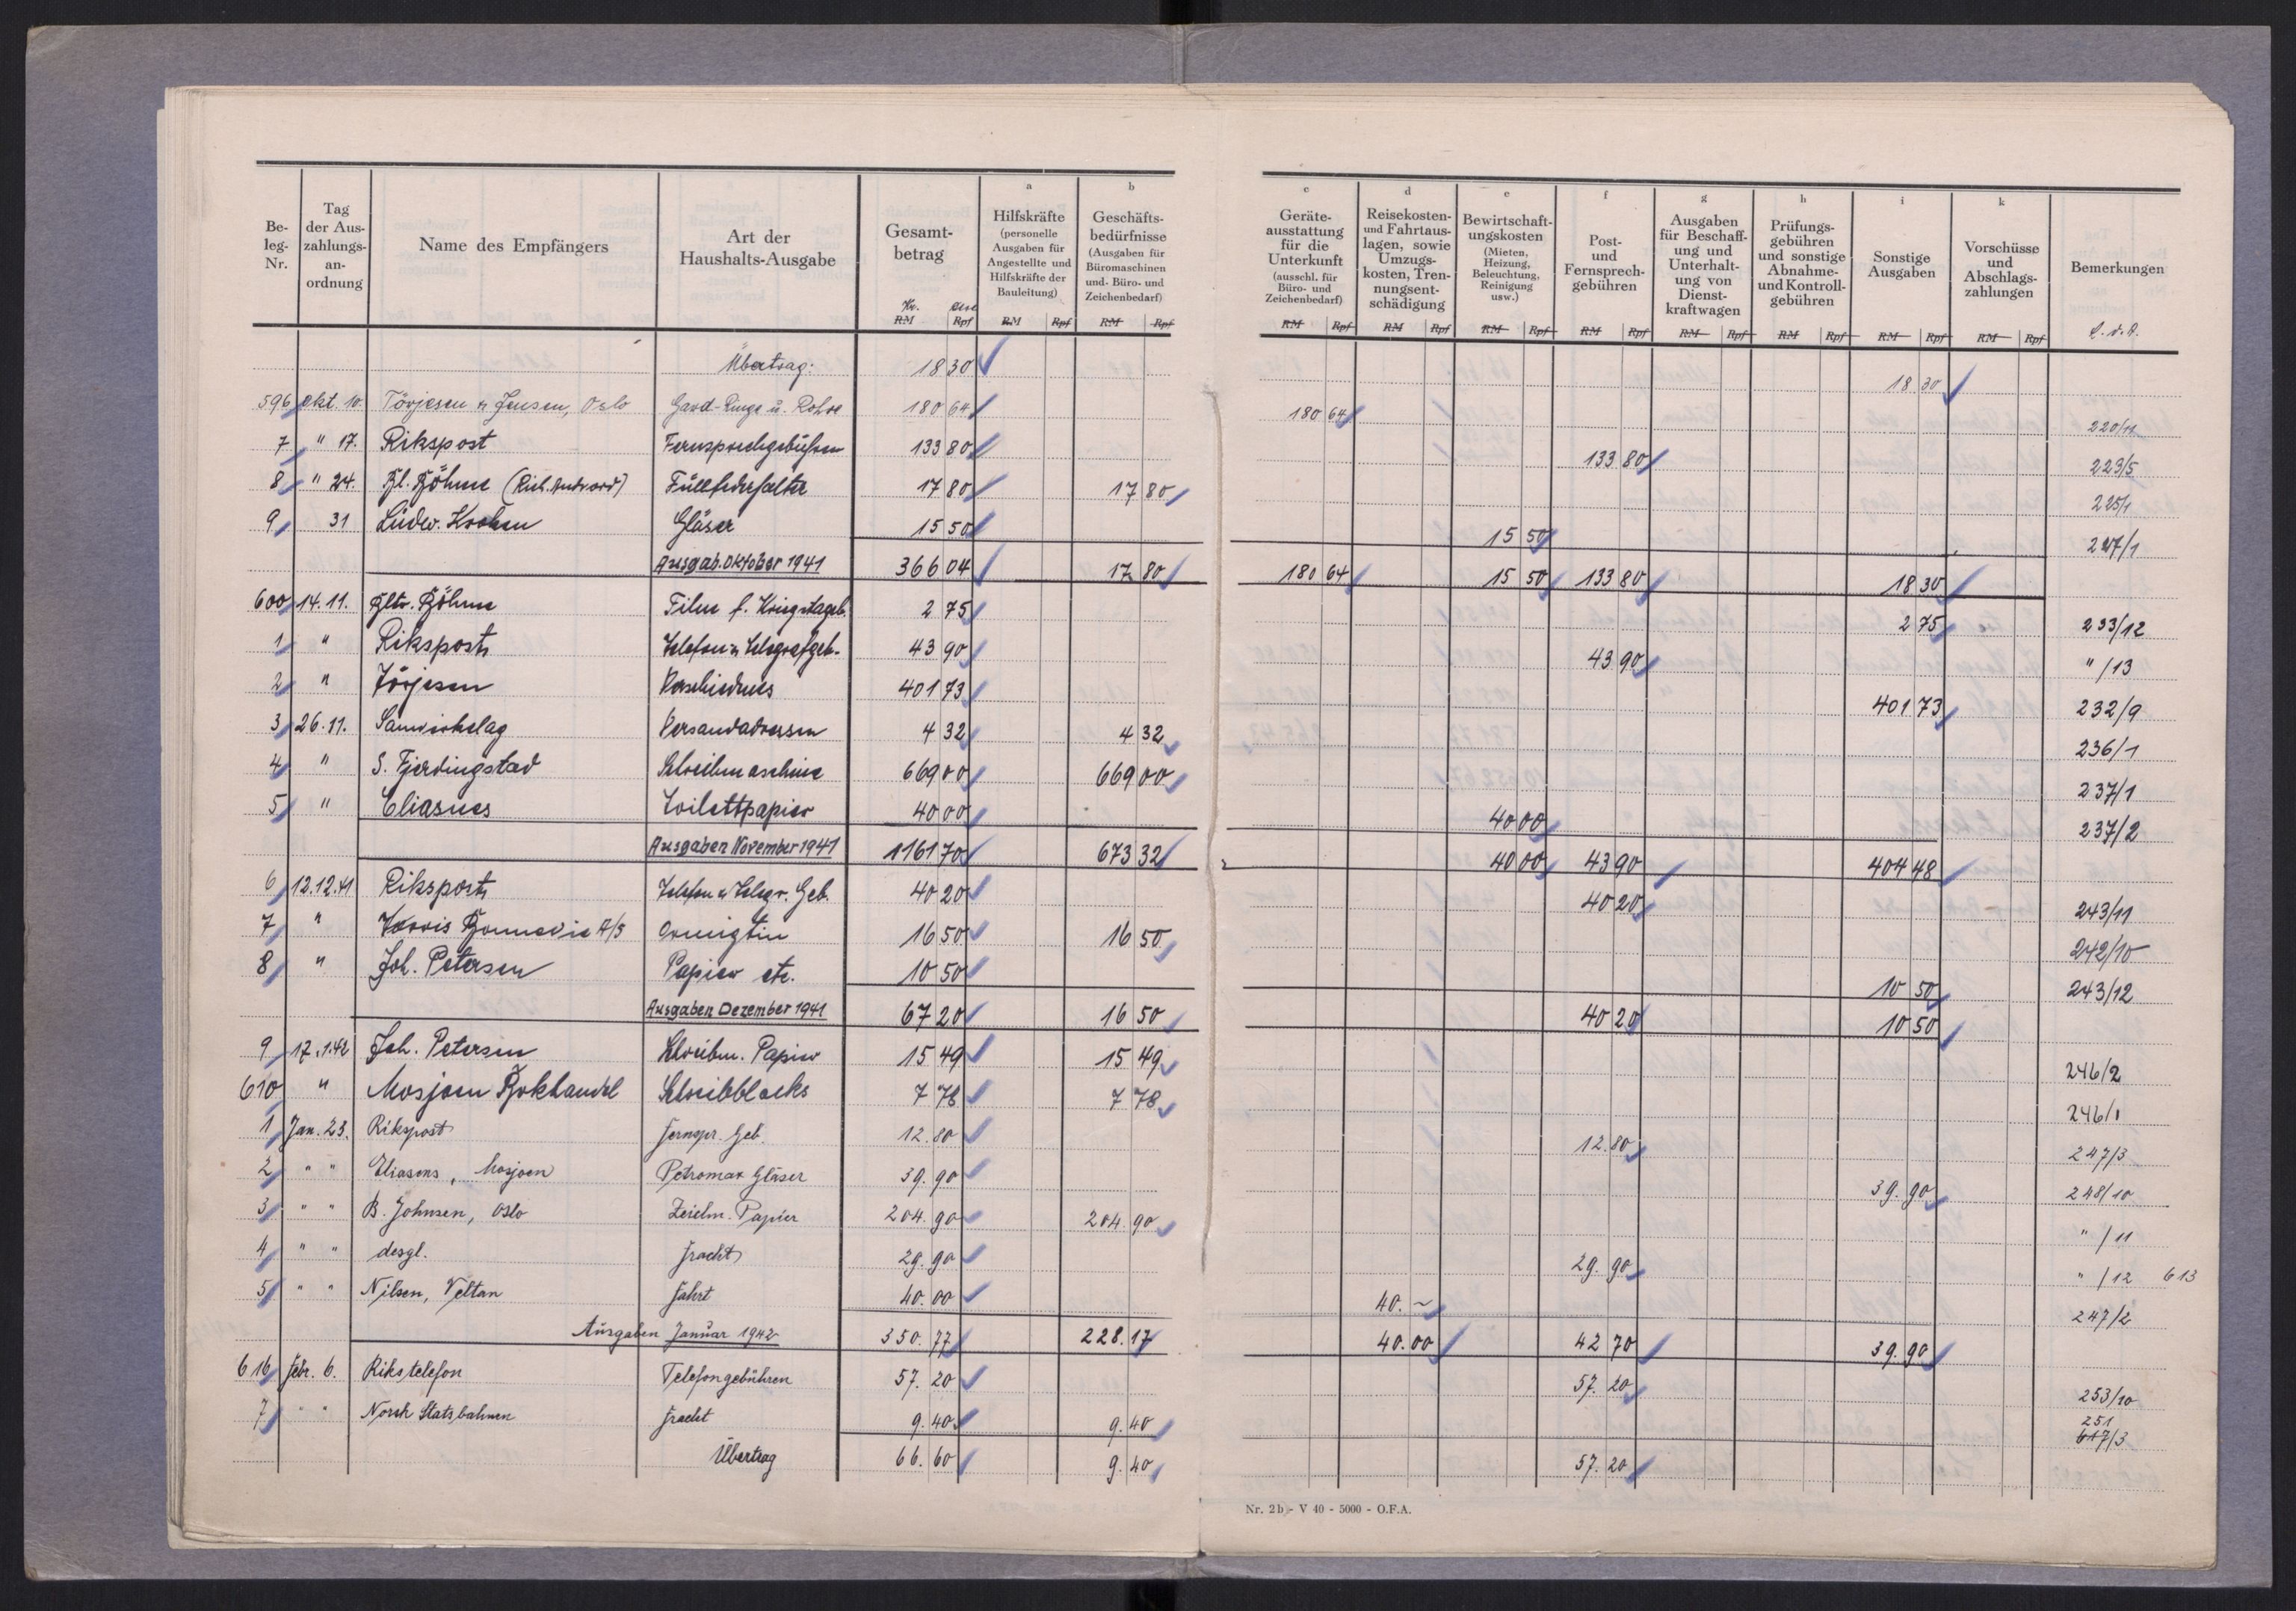 Be-
leg-
Nr.
Tag
der Aus-
zahlungs-
an-
ordnung
Name des Empfängers
Art der
Haushalts-Ausgabe
Gesamt-
betrag
Kr. RM Rpf
a
Hilfskräfte
(personelle
Ausgaben für
Angestellte und
Hilfskräfte der
Bauleitung)
RM Rpf
b
Geschäfts-
bedürfnisse
(Ausgaben für
Büromaschinen
und- Büro- und
Zeichenbedarf)
RM Rpf
c
Geräte-
ausstattung
für die
Unterkunft
(ausschl. für
Büro- und
Zeichenbedarf)
RM Rpf
d
Reisekosten-
und Fahrtaus-
lagen, sowie
Umzugs-
kosten, Tren-
nungsent-
schädigung
RM Rpf
e
Bewirtschaft-
ungskosten
(Mieten,
Heizung,
Beleuchtung,
Reinigung
usw.)
RM Rpf
f
Post-
und
Fernsprech-
gebühren
RM Rpf
g
Ausgaben
für Beschaff-
ung und
Unterhalt-
ung von
Dienst-
kraftwagen
RM Rpf
h
Prüfungs-
gebühren
und sonstige
Abnahme-
und Kontroll-
gebühren
RM Rpf
i
Sonstige
Ausgaben
RM Rpf
k
Vorschüsse
und
Abschlags-
zahlungen
RM Rpf
Bemerkungen
Übertrag: 18 30 18 30
596 okt. 10 Törjesen u Jensen, Oslo u. Rohre 180 64 180 64 220/11
7 " 17. Rikspost Fernsprechgebühren 133 80 133 80 223/5
8 " 24. Böhme Füllfederhalter 17 80 17 80 225/1
9 31 Ludw. Gläser 15 50 15 50 227/1
Ausgab. Oktober 1941 366 04 17 80 180 64 15 50 133 80 18 30
600 14.11. Böhme Film f. Kriegstageb. 2 75 2 75 233/12
1 " Rikspost Telefon u Telegrafgeb. 43 90 43 90 " /13
2 " Törjesen Verschiednes 401 73 401 73 232/9
3 26.11. Samvirkelag Versandadressen 4 32 4 32 236/1
4 " S. Fjerdingstad Schreibmaschine 669 00 669 00 237/1
5 " Eliasnes Toilettpapier 40 00 40 00 237/2
Ausgaben November 1941 1161 70 673 32 40 00 43 90 404 48
6 12.12.41 Rikspost Telefon u Telegr. Geb. 40 20 40 20 243/11
7 " A/S Ormigtin 16 50 16 50 242/10
8 " Joh. Petersen Papier etc. 10 50 10 50 243/12
Ausgaben Dezember 1941 67 20 16 50 40 20 10 50
9 17.1.42 Joh. Petersen Schreibm. Papier 15 49 15 49 246/2
610 " Mosjoen Bokhandel Schreibblocks 7 78 7 78 246/1
1 Jan. 23. Rikspost Fernspr. Geb. 12.80 12.80 247/3
2 " " Eliasens, Mosjoen Petromax Gläser 39.90 39.90 248/10
3 " " B. Johnsen, Oslo Zeichn. Papier 204.90 204.90 " /11
4 " " desgl. Fracht 29.90 29.90 " /12 613
5 " " Nilsen, Veltan Fahrt 40.00 40.~ 247/2
Ausgaben Januar 1942 350.77 228.17 40.00 42 70 39.90
616 Febr. 6. Rikstelefon Telefongebühren 57.20 57.20 253/10
7 " " Norsk Statsbahnen Fracht 9.40 9.40 251 617/3
Übertrag 66.60 9.40 57.20
Nr. 2b - V 40 - 5000 - O.F.A.